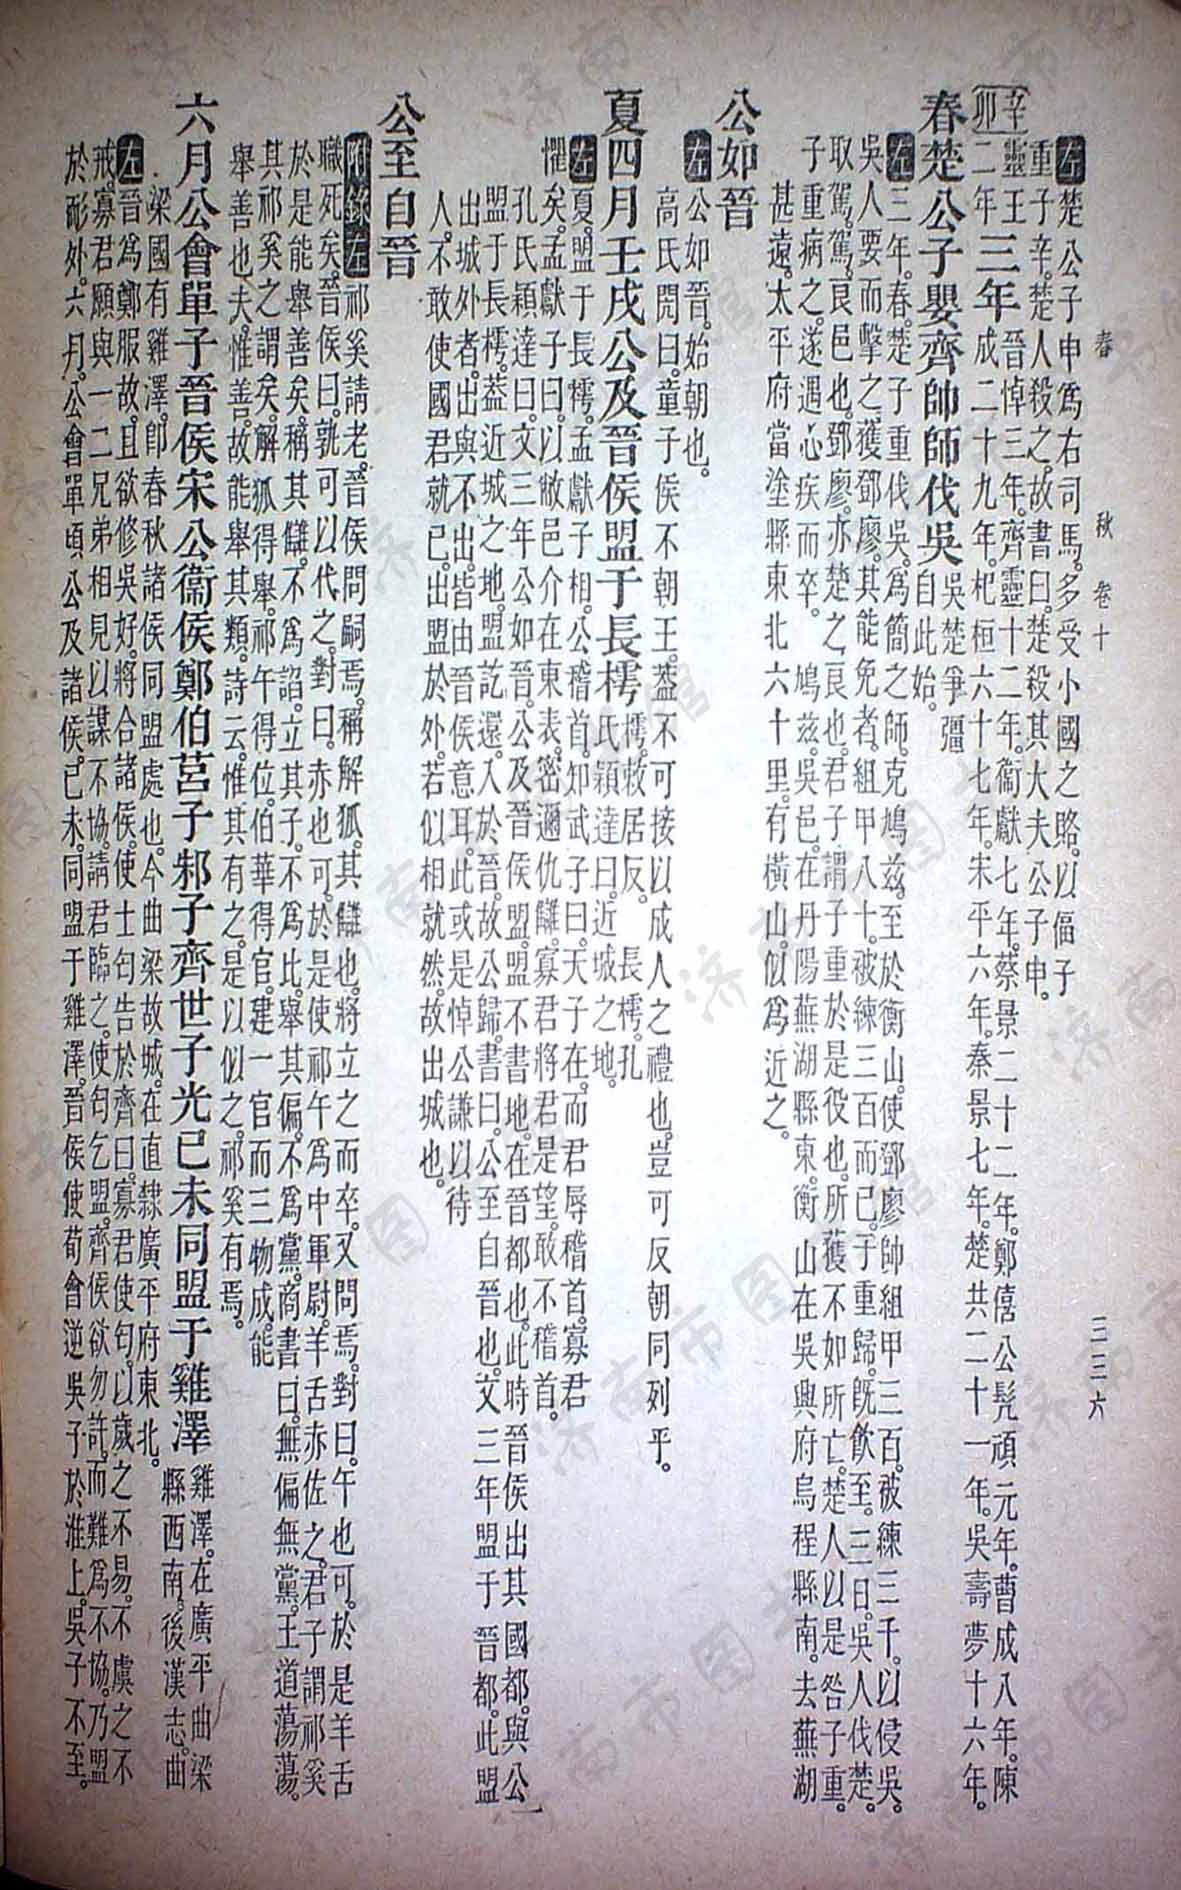 春 秋 卷十 三三六
左楚公子申爲右司馬。多受小國之賂。以偪子
重子辛。楚人殺之。故書曰。楚殺其大夫公子申。
辛卯
靈王二年
三年
晉悼三年。齊靈十二年。衞獻七年。蔡景二十二年。鄭僖公髡頑元年。曹成八年。陳
成二十九年。杞桓六十七年。宋平六年。秦景七年。楚共二十一年。吳壽夢十六年。
春楚公子嬰齊帥師伐吳
吳楚爭疆
自此始。
左三年。春。楚子重伐吳。爲簡之師。克鳩茲。至於衡山。使鄧廖帥組甲三百。被練三千。以侵吳。
吳人要而擊之。獲鄧廖。其能免者。組甲八十。被練三百而已。子重歸。旣飮至。三日。吳人伐楚。
取駕。駕。良邑也。鄧廖。亦楚之良也。君子謂子重於是役也。所獲不如所亡。楚人以是咎子重。
子重病之。遂遇心疾而卒。 鳩茲。吳邑。在丹陽蕪湖縣東。衡山在吳興府烏程縣南。去蕪湖
甚遠。太平府當塗縣東北六十里。有橫山。似爲近之。
公如晉
左公如晉。始朝也。
高氏閌曰。童子侯不朝王。蓋不可接以成人之禮也。豈可反朝同列乎。
夏四月壬戌公及晉侯盟于長樗
樗。敕居反。 長樗。孔
氏穎達曰。近城之地。
左夏。盟于長樗。孟獻子相。公稽首。知武子曰。天子在。而君辱稽首。寡君
懼矣。孟獻子曰。以敝邑介在東表。密邇仇讎。寡君將君是望。敢不稽首。
孔氏穎達曰。文三年公如晉。公及晉侯盟。盟不書地。在晉都也。此時晉侯出其國都。與公
盟于長樗。蓋近城之地。盟訖還。入於晉。故公歸。書曰。公至自晉也。文三年盟于晉都。此盟
出城外者。出與不出。皆由晉侯意耳。此或是悼公謙以待
人。不敢使國君就已。出盟於外。若似相就然。故出城也。
公至自晉
附錄左祁奚請老。晉侯問嗣焉。稱解狐。其讎也。將立之而卒。又問焉。對曰。午也可。於是羊舌
職死矣。晉侯曰。孰可以代之。對曰。赤也可。於是使祁午爲中軍尉。羊舌赤佐之。君子謂祁奚
於是能舉善矣。稱其讎。不爲諂。立其子。不爲比。舉其偏。不爲黨。商書曰。無偏無黨。王道蕩蕩。
其祁奚之謂矣。解狐得舉。祁午得位。伯華得官。建一官而三物成。能
舉善也夫。惟善。故能舉其類。詩云。惟其有之。是以似之。祁奚有焉。
六月公會單子晉侯宋公衞侯鄭伯莒子邾子齊世子光已未同盟于雞澤
雞澤。在廣平曲梁
縣西南。後漢志。曲
梁國有雞澤。卽春秋諸侯同盟處也。今曲梁故城。在直隸廣平府東北。
左晉。爲鄭服故。且欲修吳好。將合諸侯。使士匄告於齊曰。寡君使匄。以歲之不易。不虞之不
戒。寡君願與一二兄弟相見。以謀不協。請君臨之。使匄乞盟。齊侯欲勿許。而難爲不協。乃盟
於耏外。六月。公會單頃公及諸侯。已未。同盟于雞澤。晉侯使荀會逆吳子於淮上。吳子不至。